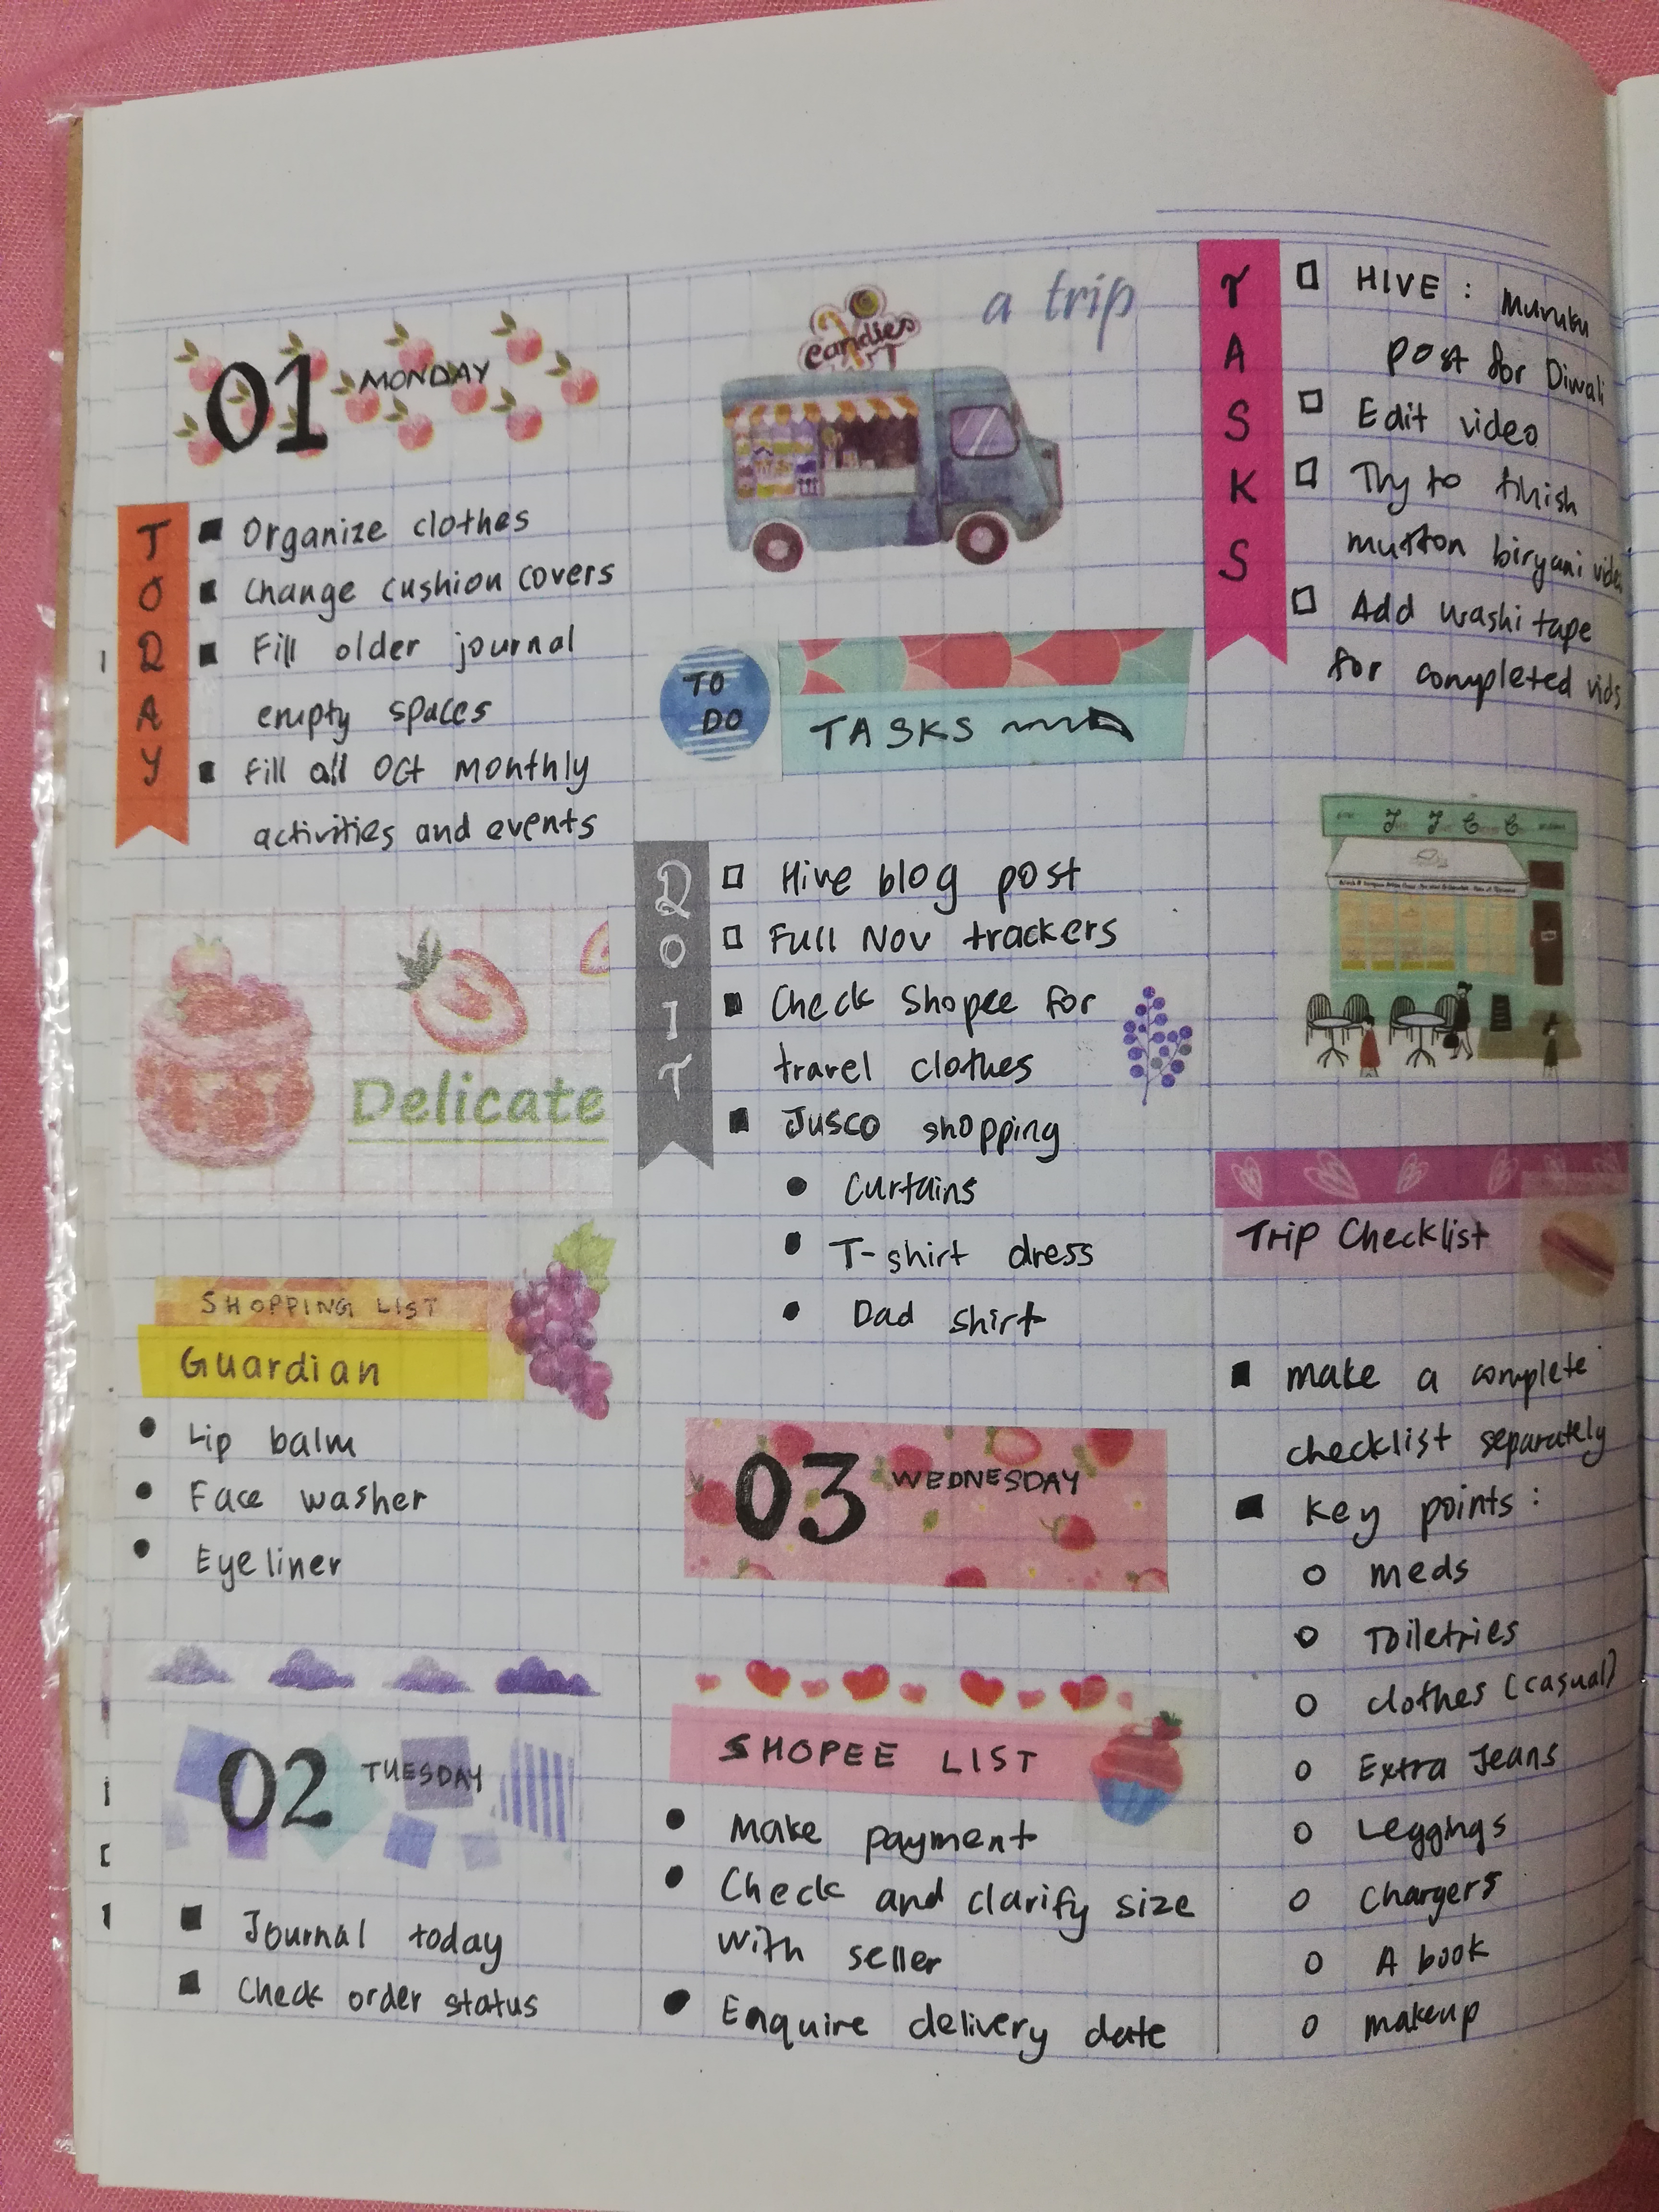 01 MONDAY
TODAY
Organize clothes
Change cushion covers
Fill older journal
empty spaces
Fill all Oct monthly
activities and events
Delicate
SHOPPING LIST
Guardian
Lip balm
Face washer
Eyeliner
02 TUESDAY
Journal today
Check order status
a trip
candies
TO
DO
TASKS
DO IT
Hive blog post
Full Nov trackers
Check Shopee for
travel clothes
Jusco shopping
Curtains
T-shirt dress
Dad shirt
03 WEDNESDAY
SHOPEE LIST
Make payment
Check and clarify size
with seller
Enquire delivery date
TASKS
HIVE: Muruku
post for Diwali
Edit video
Try to finish
mutton biryani video
Add washi tape
for completed vids
Trip Checklist
make a complete
checklist separately
Key points:
meds
Toiletries
clothes (casual)
Extra Jeans
Leggings
Chargers
A book
makeup